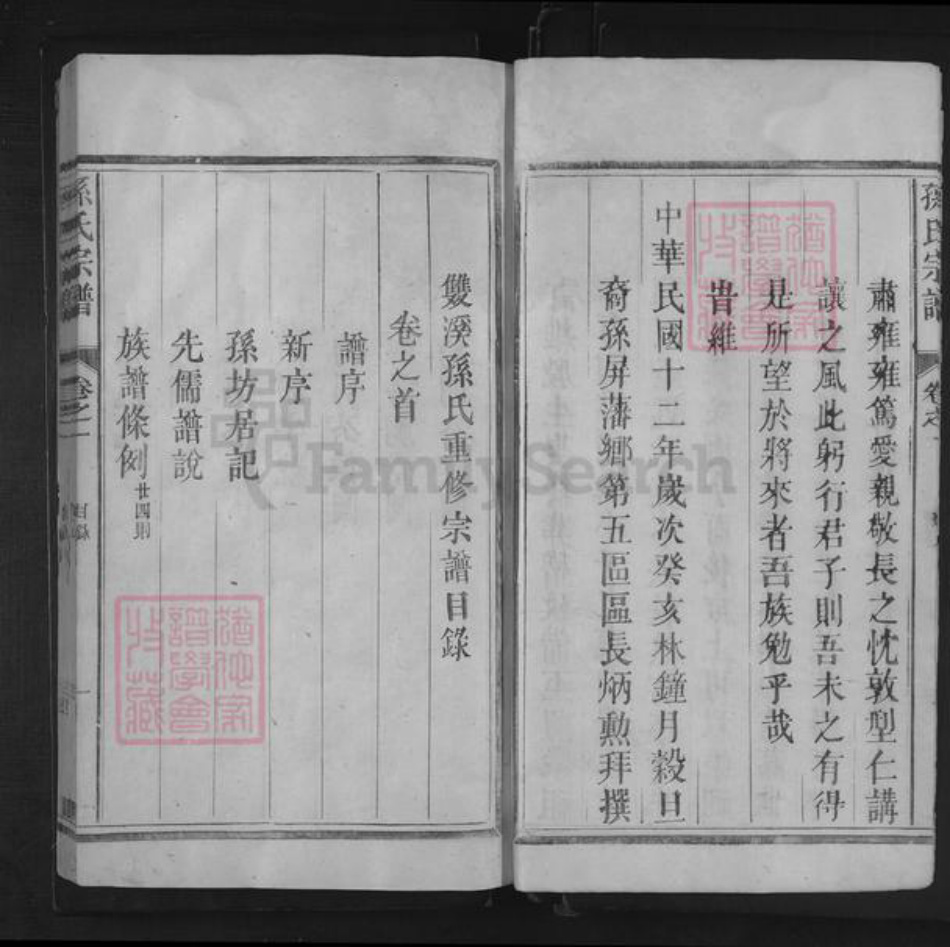 孫氏宗譜
卷之一
肅雍雍雍篤愛親敬長之忱敦型仁講
讓之風此躬行君子則吾未之有得
是所望於將來者吾族勉乎哉
旹維
中華民國十二年歲次癸亥林鐘月穀旦
裔孫屏藩鄉第五區區長炳勲拜撰
雙溪孫氏重修宗譜目錄
卷之首
譜序
新序
孫坊居記
先儒譜說
族譜條例 廿四則
孫氏宗譜
卷之一
目錄
FamilySearch
譜學會
收藏
譜學會
收藏